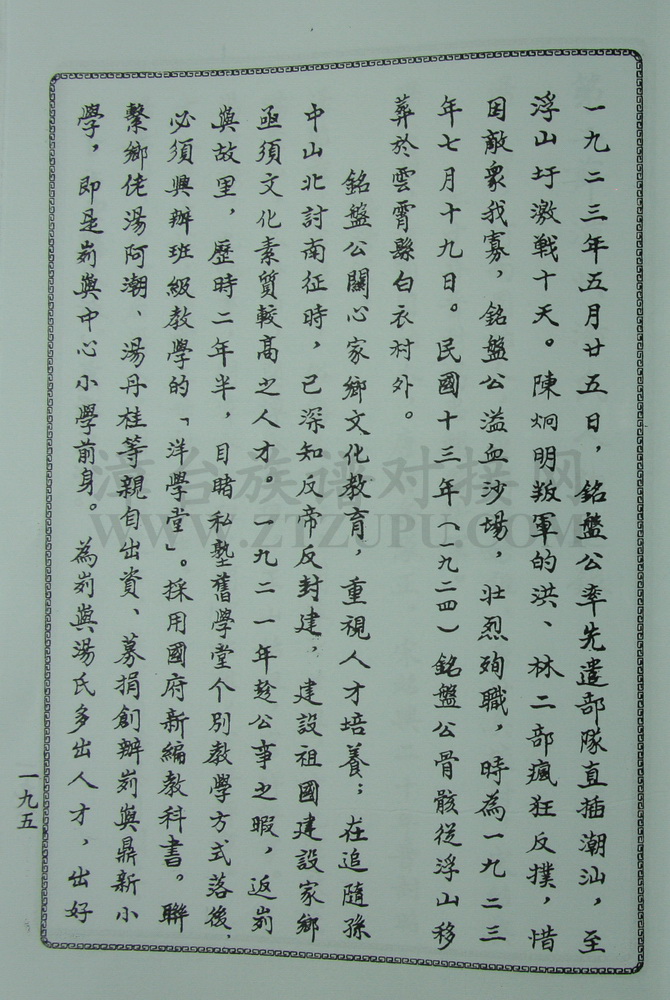 一九二三年五月廿五日，銘盤公率先遣部隊直插潮汕，至
浮山圩激戰十天。陳炯明叛軍的洪、林二部瘋狂反撲，惜
因敵衆我寡，銘盤公溢血沙場，壯烈殉職，時為一九二三
年七月十九日。民國十三年（一九二四）銘盤公骨骸從浮山移
葬於雲霄縣白衣村外。
銘盤公關心家鄉文化教育，重視人才培養；在追隨孫
中山北討南征時，已深知反帝反封建，建設祖國建設家鄉
亟須文化素質較高之人才。一九二一年趁公事之暇，返峛
嶼故里，歷時二年半，目睹私塾舊學堂个別教學方式落後，
必須興辦班級教學的「洋學堂」。採用國府新編教科書。聯
繫鄉佬湯阿潮、湯丹桂等親自出資、募捐創辦峛嶼鼎新小
學，即是峛嶼中心小學前身。為峛嶼湯氏多出人才，出好
一九五
漳台族谱对接网
WWW.ZTZUPU.COM